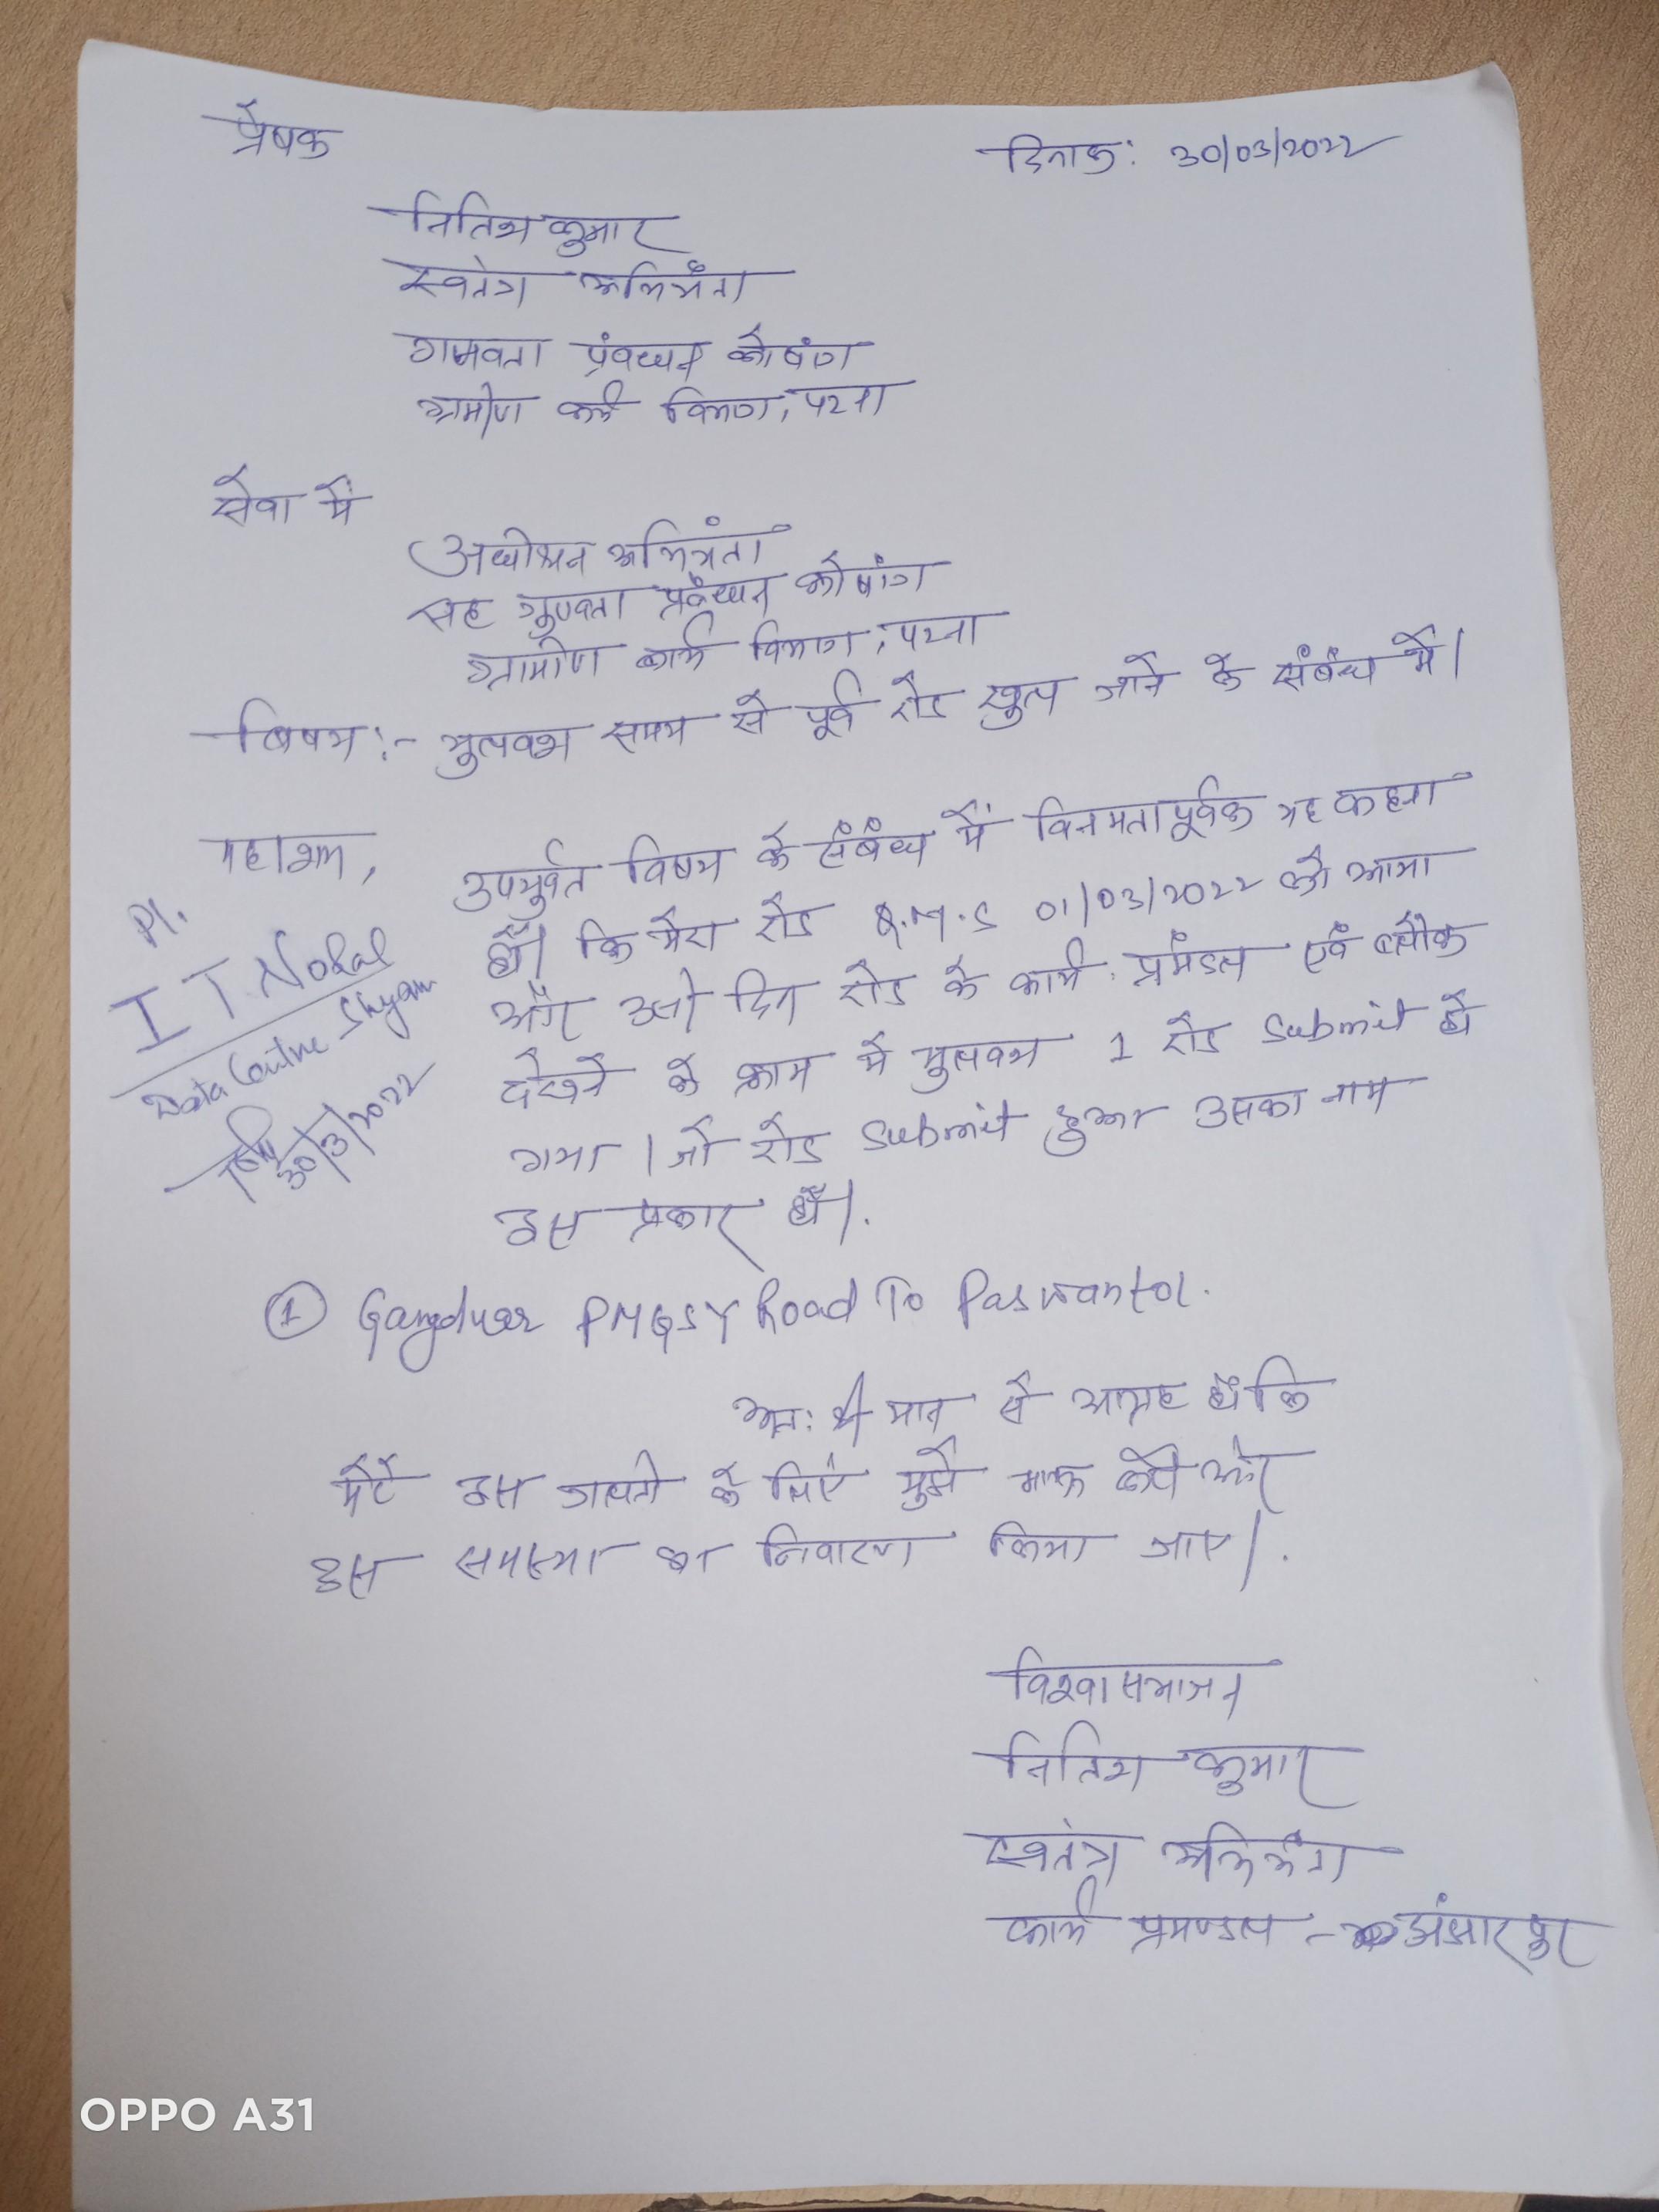 प्रेषक
दिनांक: 30/03/2022
नितिश कुमार
स्वतंत्र अभियंता
गुणवता प्रंवधन कोषांग
ग्रामीण कार्य विभाग, पटना
सेवा में
अधीक्षन अभियंता
सह गुणवता प्रबंधन कोषांग
ग्रामीण कार्य विभाग, पटना
विषय :- भुलवश समय से पूर्व रोड खुल जाने के संबंध में।
महाशय,
उपर्युक्त विषय के संबंध में विनमतापूर्वक यह कहना
है। कि मेरा रोड Q.M.S 01/03/2022 को आया
और उसी दिन रोड के कार्य प्रमंडल एवं ब्लौक
देखने के क्रम में भुलवश 1 रोड Submit हो
गया। जो रोड Submit हुआ उसका नाम
इस प्रकार है।.
Pl.
I T. Nodal
Data Centre Shyam
30/3/2022
① Gangduar PMGSY Road To Paswantol.
अत: श्री मान से आग्रह है कि
मेरे इस गलती के लिए मुझे माफ करे और
इस समस्या का निवारण किया जाए।.
विश्वासभाजन
नितिश कुमार
स्वतंत्र अभियंता
कार्य प्रमण्डल - झंझारपुर
OPPO A31